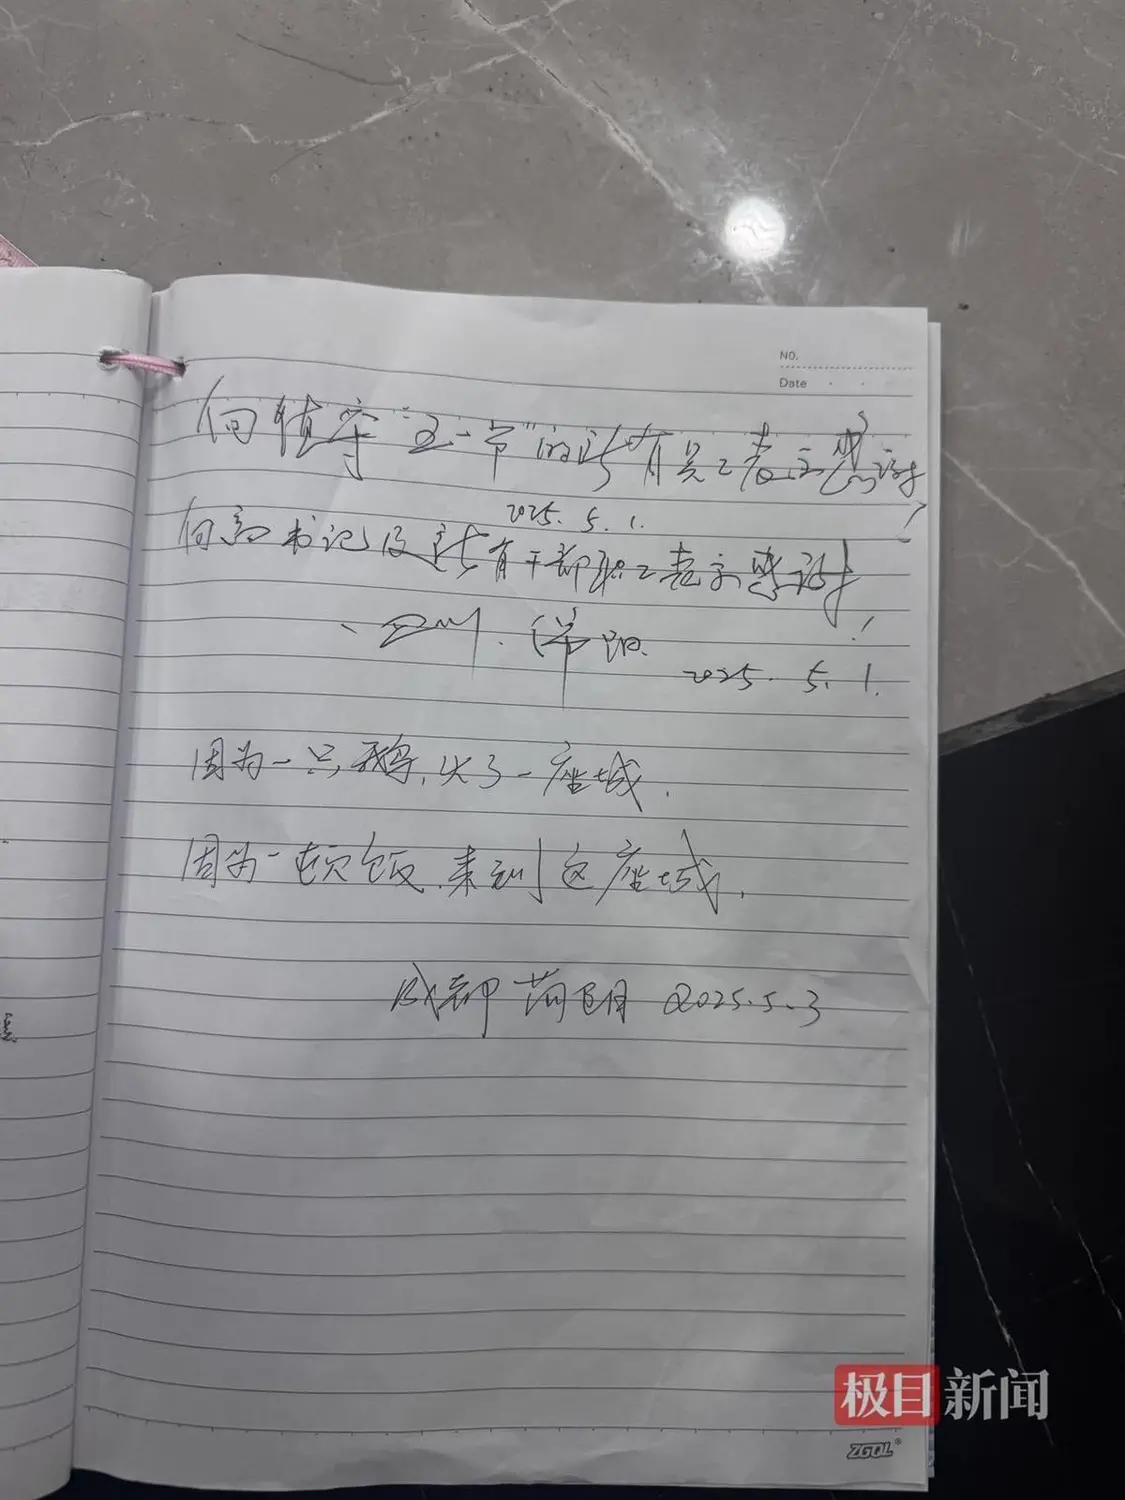 NO.
Date
向值守“五一节”的所有员工表示感谢！
2025. 5. 1.
向 书记及所有干部职工表示感谢！
四川. 绵阳.
2025. 5. 1.
因为一只鹅，火了一座城.
因为一顿饭，来到这座城.
成都 2025.5.3
极目新闻
ZGQL®